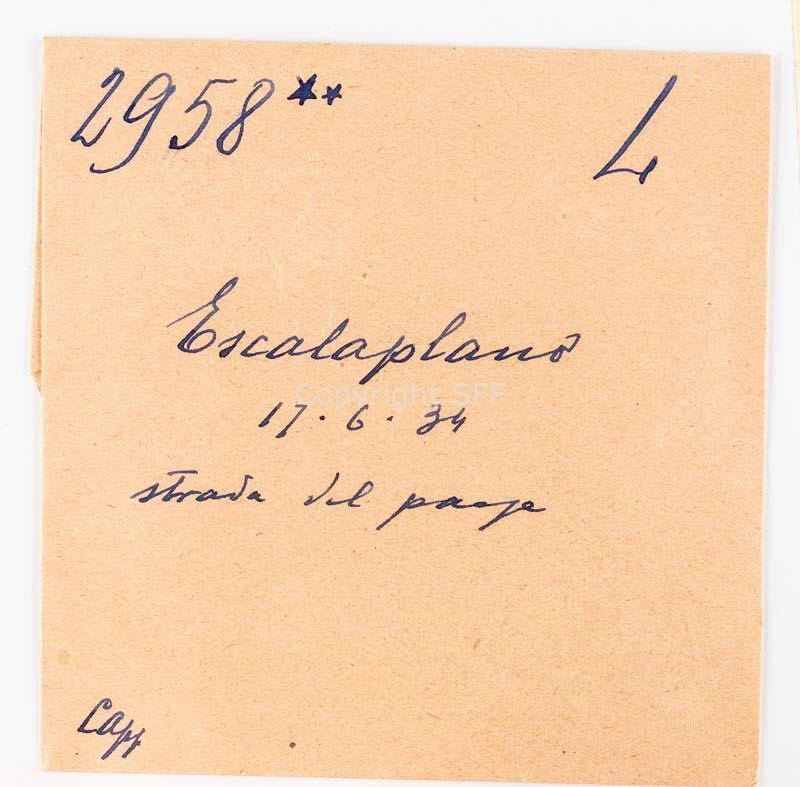 2958 ** L
Escalaplano
Copyright SFF
17.6.34
strada del paese
Capp